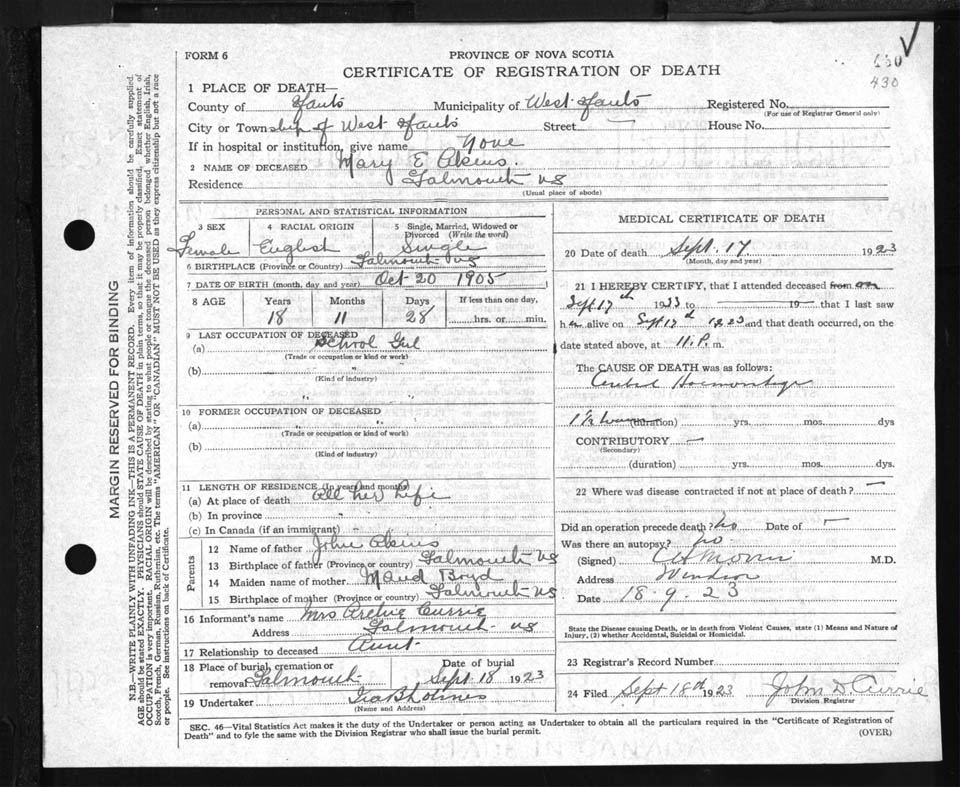 630
430
FORM 6
PROVINCE OF NOVA SCOTIA
CERTIFICATE OF REGISTRATION OF DEATH
1 PLACE OF DEATH—
County of Hants Municipality of West Hants Registered No.
(For use of Registrar General only)
City or Township of West Hants Street — House No.
If in hospital or institution, give name None
2 NAME OF DECEASED Mary E Akins.
Residence Falmouth NS
(Usual place of abode)
PERSONAL AND STATISTICAL INFORMATION
3 SEX 4 RACIAL ORIGIN 5 Single, Married, Widowed or Divorced (Write the word)
Female English Single
6 BIRTHPLACE (Province or Country) Falmouth NS
7 DATE OF BIRTH (month, day and year) Oct 20 1905
8 AGE Years Months Days If less than one day,
18 11 28 hrs. or min.
9 LAST OCCUPATION OF DECEASED
(a) School Girl
(Trade or occupation or kind of work)
(b) "
(Kind of industry)
10 FORMER OCCUPATION OF DECEASED
(a)
(Trade or occupation or kind of work)
(b)
(Kind of industry)
11 LENGTH OF RESIDENCE (In years and months)
(a) At place of death All her Life
(b) In province "
(c) In Canada (if an immigrant) "
Parents
12 Name of father John Akins
13 Birthplace of father (Province or Country) Falmouth NS
14 Maiden name of mother Maud Boyd
15 Birthplace of mother (Province or country) Falmouth NS
16 Informant's name Mrs Archie Currie
Address Falmouth NS
17 Relationship to deceased Aunt
18 Place of burial, cremation or removal Falmouth Date of burial Sept 18 1923
19 Undertaker Ira B Lohnes
(Name and Address)
MEDICAL CERTIFICATE OF DEATH
20 Date of death Sept. 17 1923
(Month, day and year)
21 I HEREBY CERTIFY, that I attended deceased from on
Sept 17th 1923 to 19— that I last saw
h er alive on Sept 17th 1923 and that death occurred, on the
date stated above, at 11.P. m.
The CAUSE OF DEATH was as follows:
Cerebral Haemorrhage
1½ hours (duration) yrs. mos. dys
CONTRIBUTORY —
(Secondary)
(duration) yrs. mos. dys.
22 Where was disease contracted if not at place of death? —
Did an operation precede death? no Date of —
Was there an autopsy? no.
(Signed) Morris M.D.
Address Windsor
Date 18.9.23
State the Disease causing Death, or in death from Violent Causes, state (1) Means and Nature of Injury, (2) whether Accidental, Suicidal or Homicidal.
23 Registrar's Record Number
24 Filed Sept 18th 1923 John D. Currie
Division Registrar
SEC. 46—Vital Statistics Act makes it the duty of the Undertaker or person acting as Undertaker to obtain all the particulars required in the "Certificate of Registration of
Death" and to fyle the same with the Division Registrar who shall issue the burial permit.
(OVER)
MARGIN RESERVED FOR BINDING
N.B.—WRITE PLAINLY WITH UNFADING INK—THIS IS A PERMANENT RECORD. Every item of information should be carefully supplied.
AGE should be stated EXACTLY. PHYSICIANS should STATE CAUSE OF DEATH in plain terms, so that it may be properly classified. Exact statement of
OCCUPATION is very important. RACIAL ORIGIN will be described by stating to what people or tongue the deceased person belonged whether English, Irish,
Scotch, French, German, Russian, Ruthenian, etc. The terms "AMERICAN" OR "CANADIAN" MUST NOT BE USED as they express citizenship but not a race
or people. See instructions on back of Certificate.